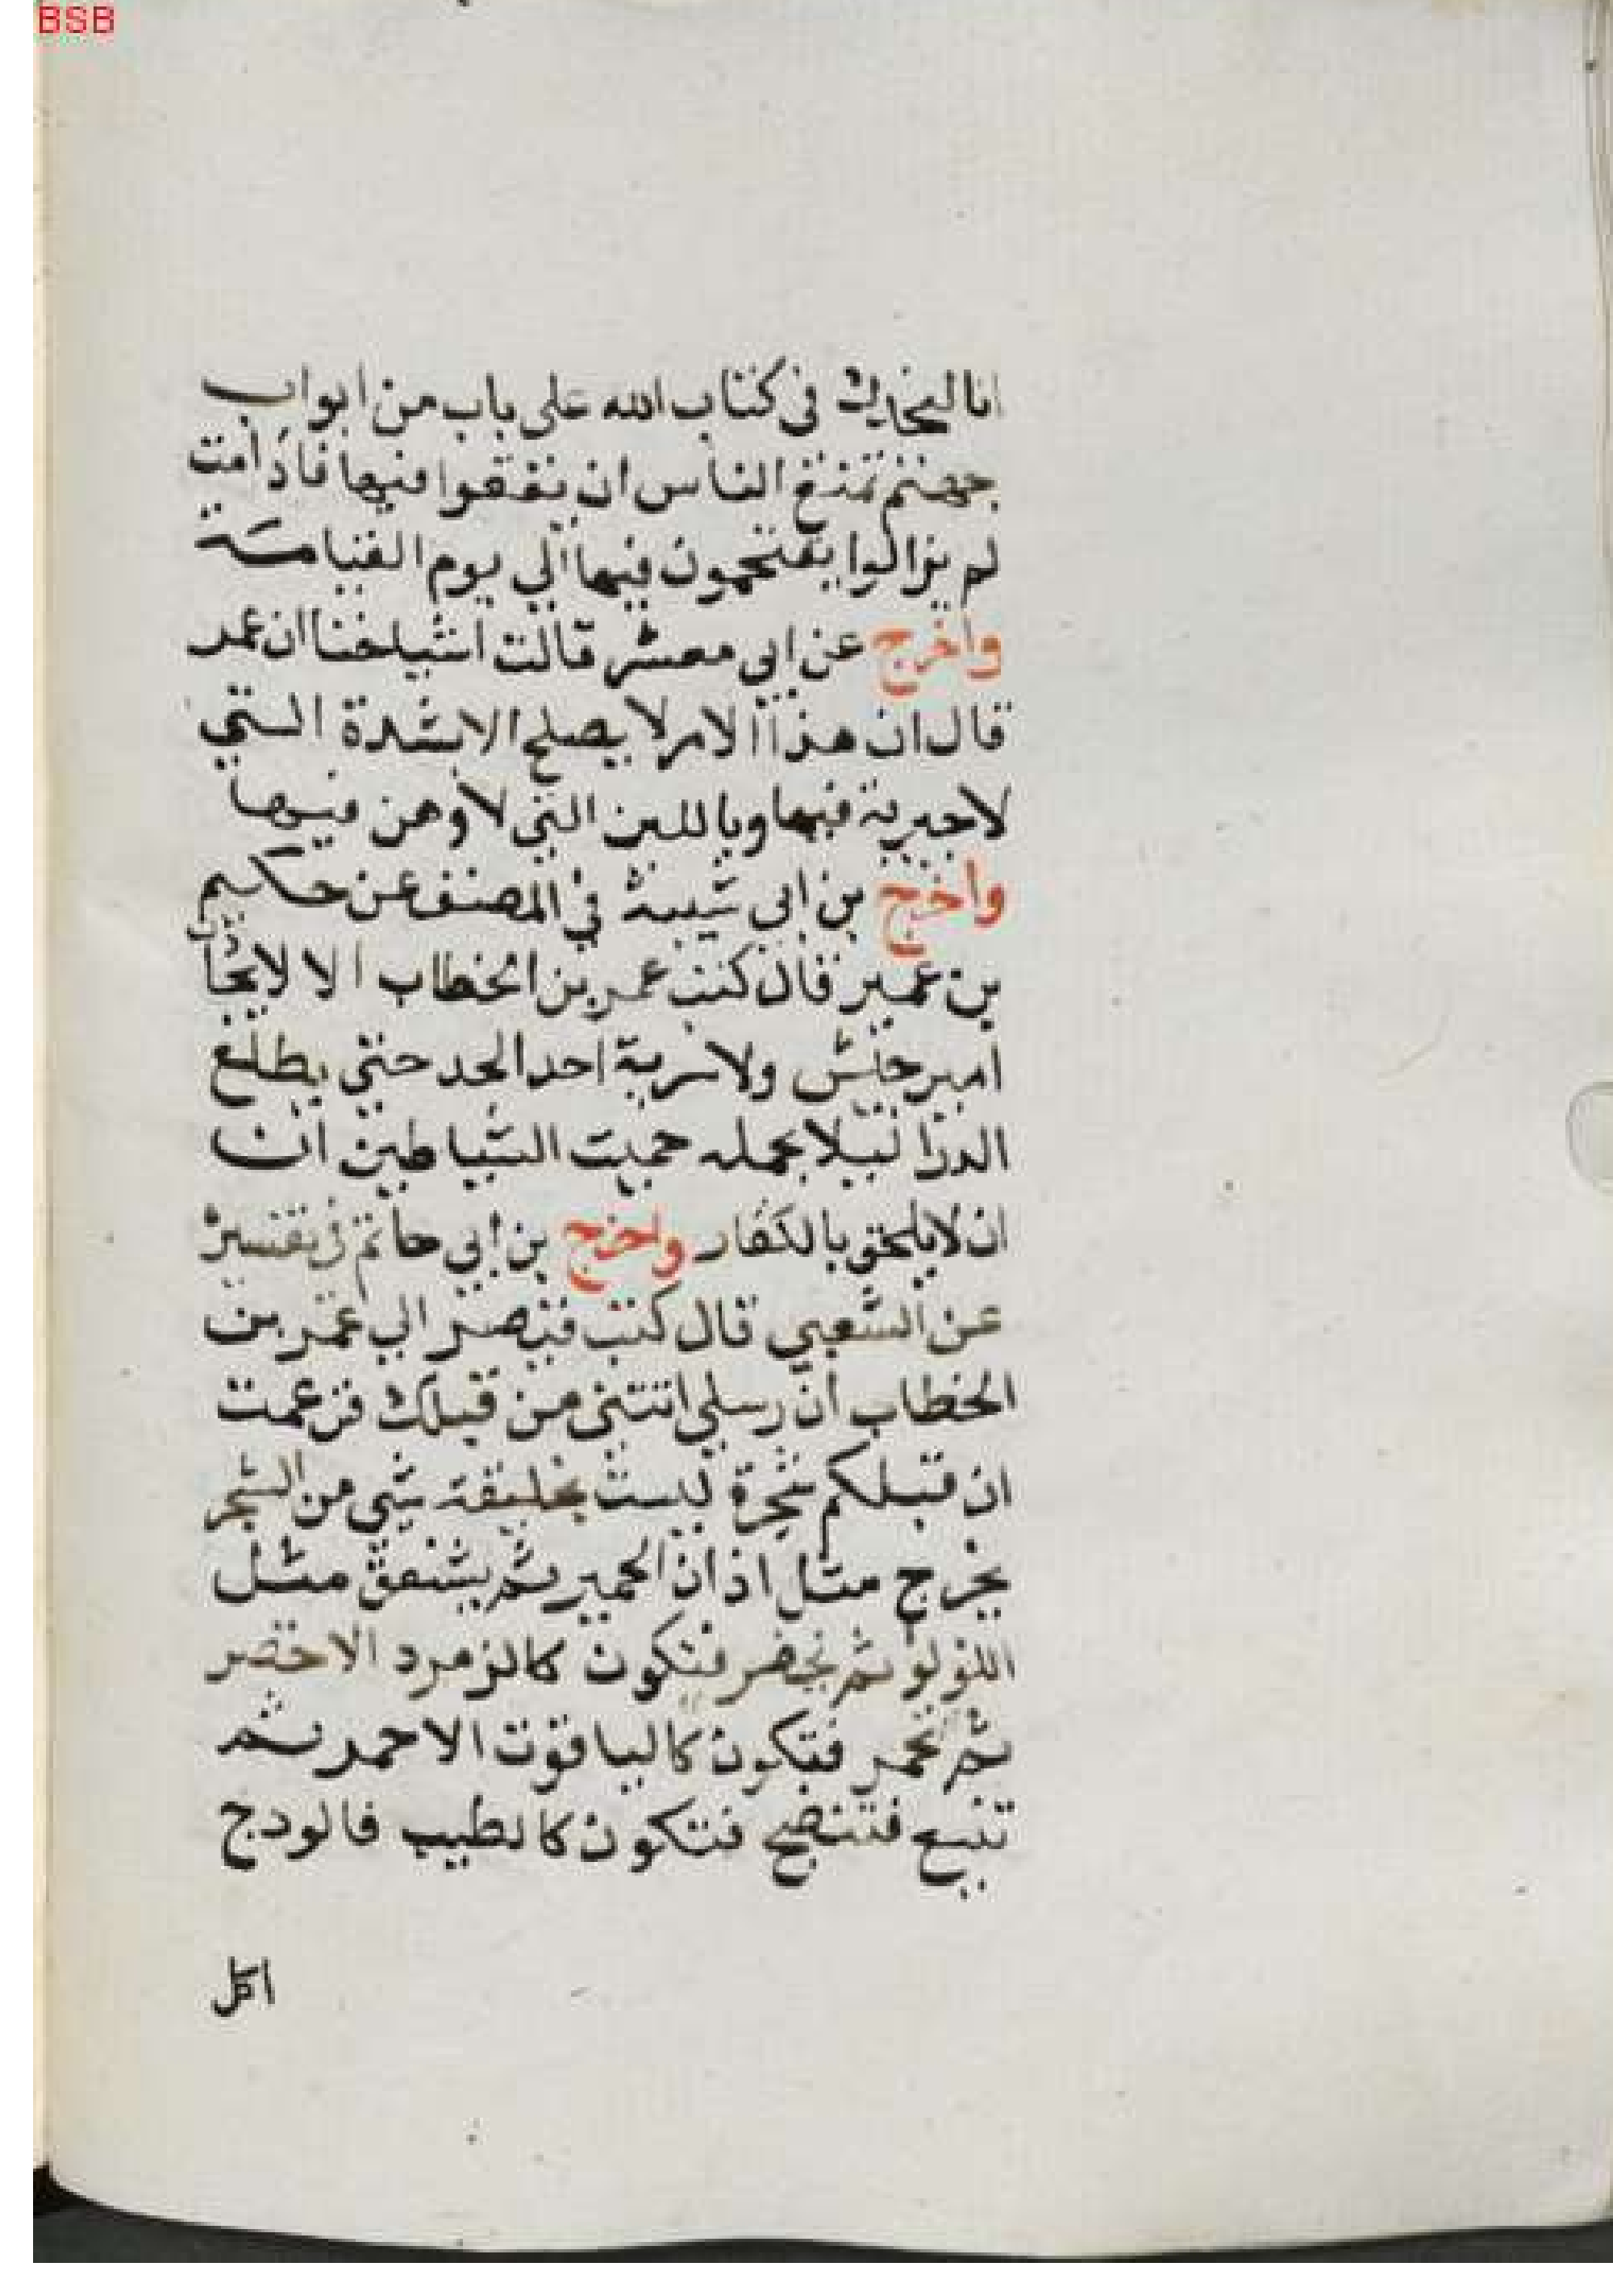 BSB
انا لنجدك في كتاب الله على باب من ابواب
جهنم تمنع الناس ان يقعوا فيها فاذا مت
لم يزالوا يقتحمون فيها الى يوم القيامة
واخرج عن ابي معشر قالت اشياخنا ان عمر
قال ان هذا الامر لا يصلح الا بشدة التي
لا جبرية فيها وباللين التي لا وهن فيها
واخرج بن ابي شيبة في المصنف عن حكيم
بن عمير قال كتب عمر بن الخطاب الا لا
امير جيش ولا سرية احد الحد حتى يطلع
الدرا ليلا يحمله حميت الشياطين ان
ان لا يلحق بالكفار واخرج بن ابي حاتم في تفسيره
عن الشعبي قال كتب قيصر الي عمر بن
الخطاب ان رسلي اتتني من قبلك فزعمت
ان قبلكم شجرة ليست بخليقة شي من الشجر
يخرج مثل اذان الحمير ثم يشقق مثل
اللولو ثم يخضر فيكون كالزمرد الاخضر
ثم تحمر فتكون كالياقوت الاحمر ثم
تينع فتنضج فتكون كالطيب فالودج
اكل